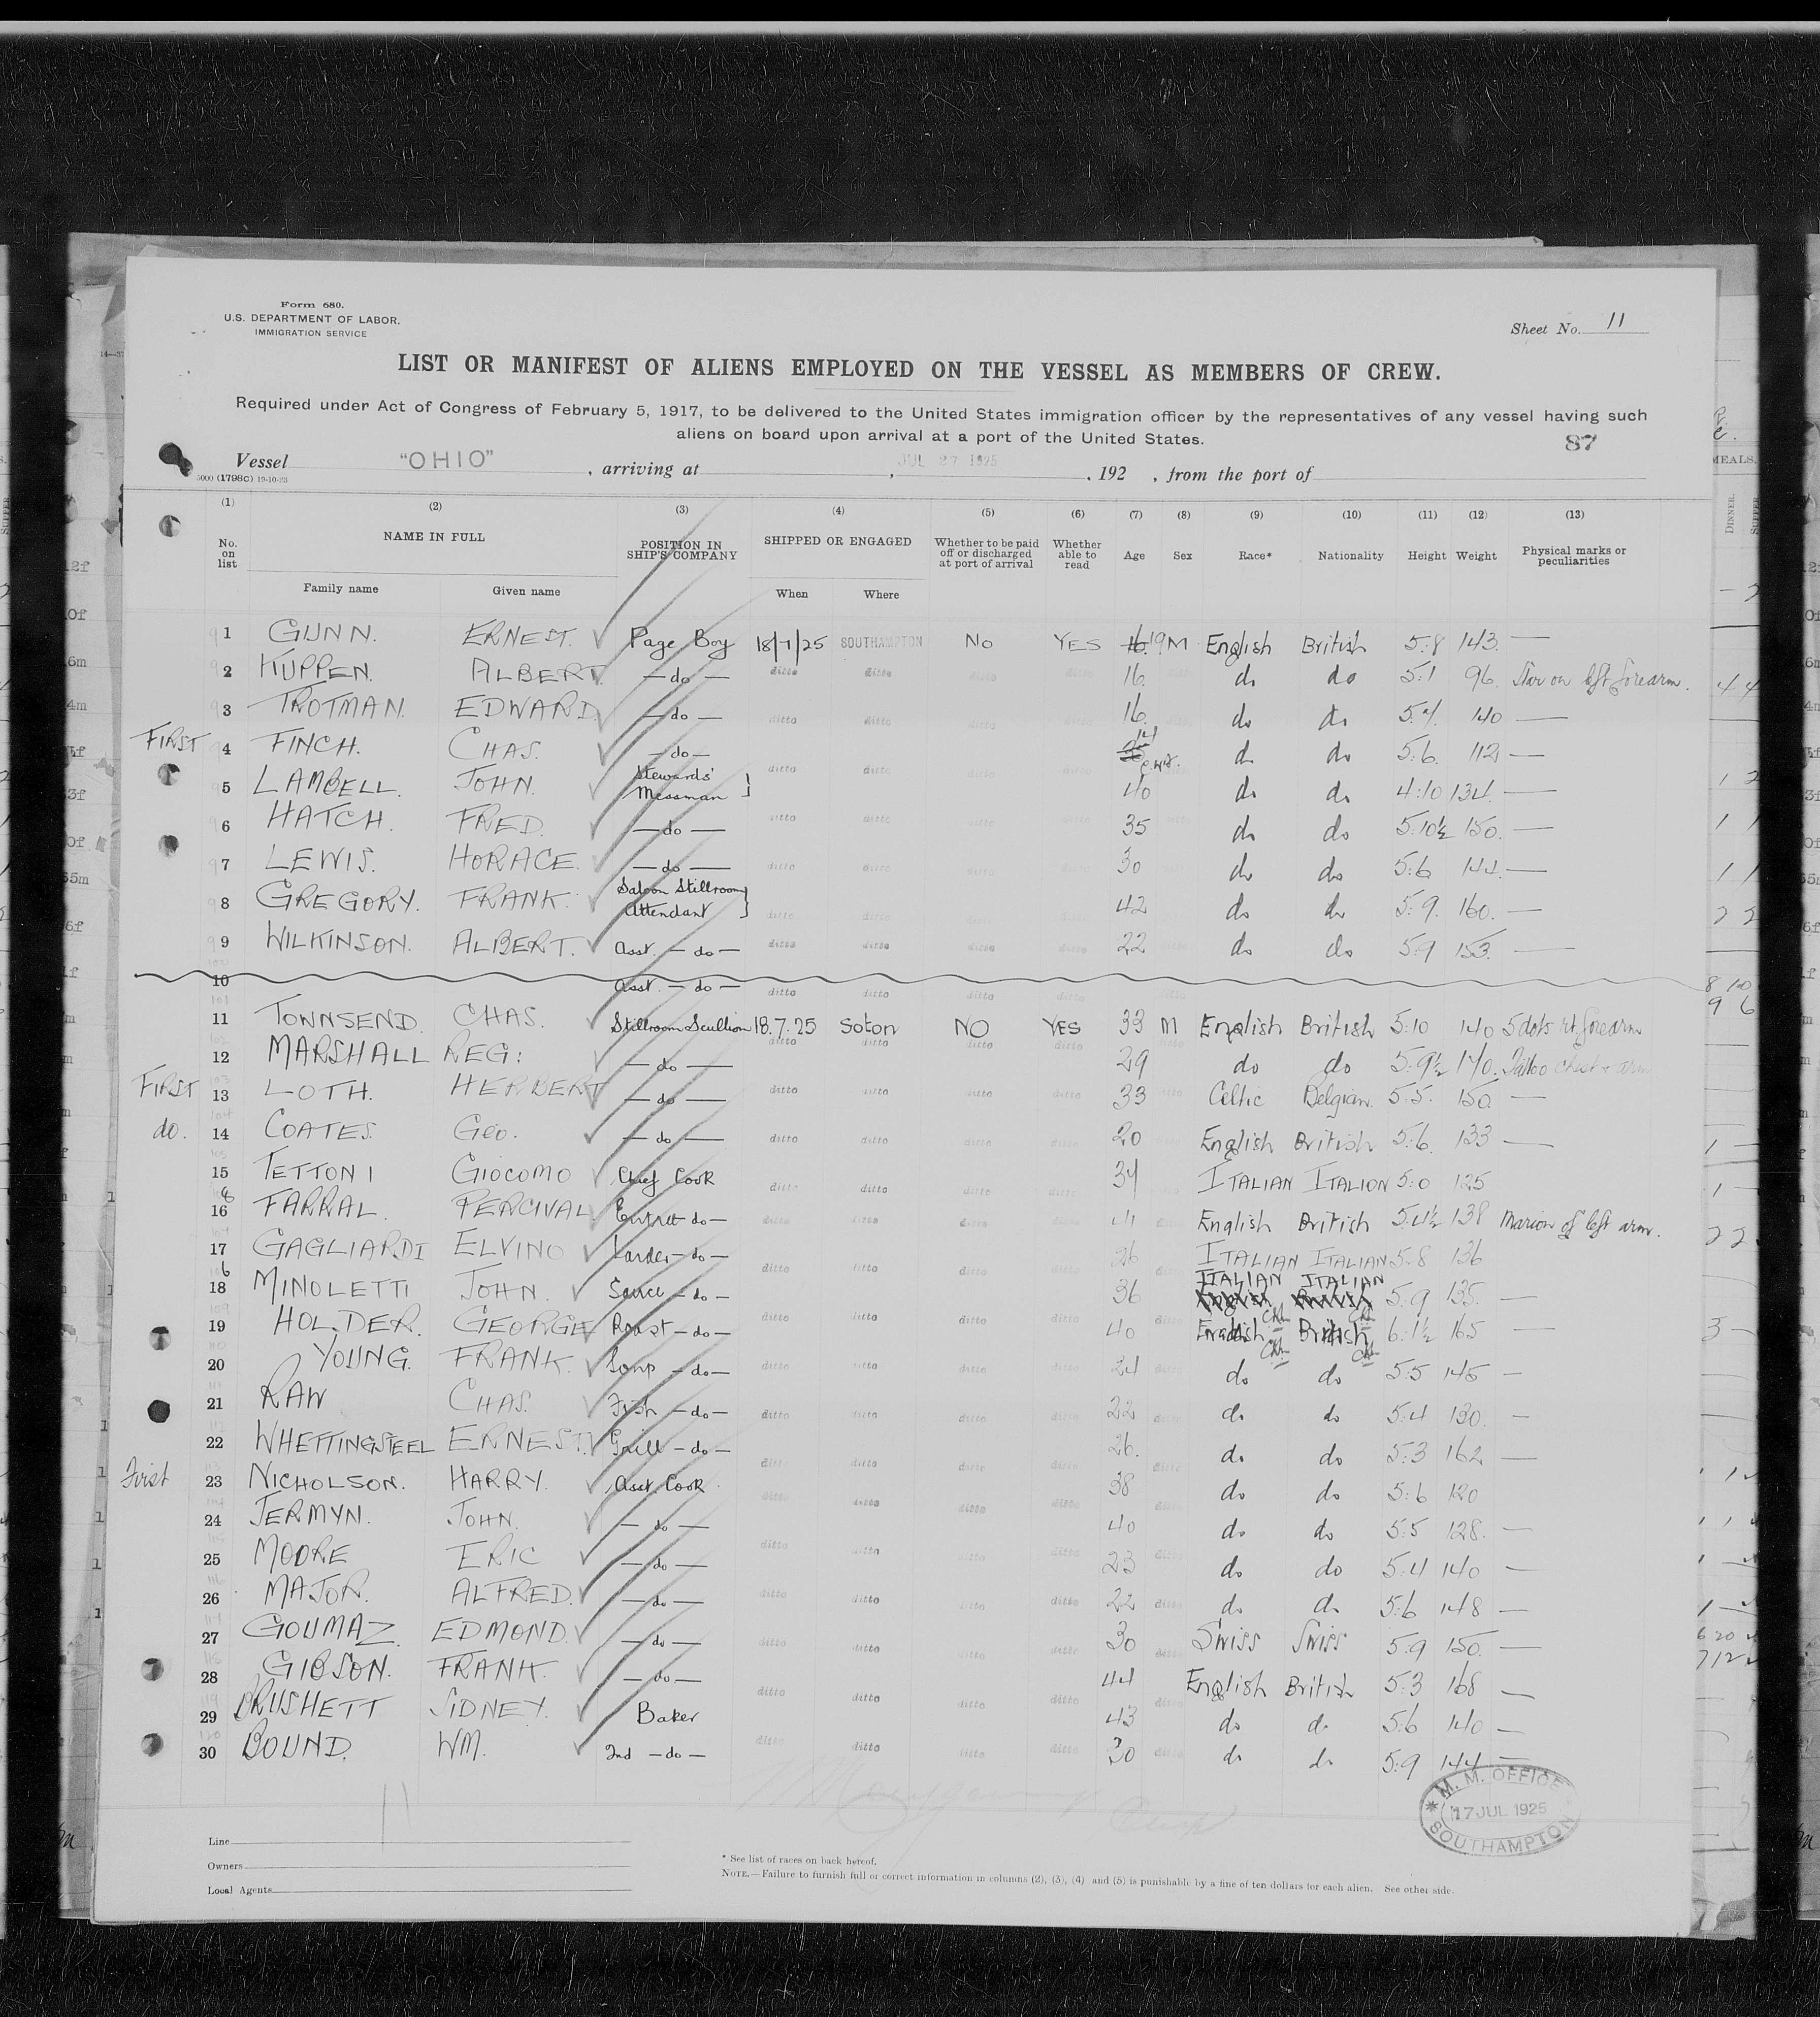 Form 680.
U.S. DEPARTMENT OF LABOR.
IMMIGRATION SERVICE
Sheet No. 11
LIST OR MANIFEST OF ALIENS EMPLOYED ON THE VESSEL AS MEMBERS OF CREW.
Required under Act of Congress of February 5, 1917, to be delivered to the United States immigration officer by the representatives of any vessel having such
aliens on board upon arrival at a port of the United States.
87
Vessel "OHIO", arriving at , JUL 27 1925 , 192 , from the port of
5000 (1798C) 19-10-23
(1) (2) (3) (4) (5) (6) (7) (8) (9) (10) (11) (12) (13)
No. on list NAME IN FULL POSITION IN SHIP'S COMPANY SHIPPED OR ENGAGED Whether to be paid off or discharged at port of arrival Whether able to read Age Sex Race* Nationality Height Weight Physical marks or peculiarities
Family name Given name When Where
1 GUNN. ERNEST. Page Boy 18/7/25 SOUTHAMPTON No YES 16 19 M English British 5:8 143. —
2 KUPPEN. ALBERT — do — ditto ditto ditto ditto 16. do do 5:1 96. Star on left forearm.
3 TROTMAN. EDWARD — do — ditto ditto 16. do do 5:4. 140 —
FIRST 4 FINCH. CHAS. — do — ditto ditto do do 5:6. 112 —
5 LAMBELL. JOHN. Stewards' Messman 40 do do 4:10 134. —
6 HATCH. FRED. — do — ditto ditto 35 do do 5:10½ 150. —
7 LEWIS. HORACE. — do — ditto ditto 30 do do 5:6 144. —
8 GREGORY. FRANK. Saloon Stillroom Attendant ditto ditto 42 do do 5:9. 160. —
9 WILKINSON. ALBERT. Asst. — do — ditto ditto ditto ditto 22 do do 5:9 153. —
10 Asst. — do — ditto ditto ditto ditto
11 TOWNSEND. CHAS. Stillroom Scullion 18.7.25 Soton NO YES 33 M English British 5:10 140 5 dots rt. forearm
12 MARSHALL REG: — do — ditto ditto ditto ditto 29 do do 5:9½ 170. Tattoo Chest + arm
FIRST 13 LOTH. HERBERT — do — ditto ditto ditto ditto 33 Celtic Belgian. 5:5. 150. —
do. 14 COATES. Geo. — do — ditto ditto ditto ditto 20 English British 5:6. 133 —
15 TETTONI GIOCOMO Chief Cook 34 ITALIAN ITALION 5:0 125
16 FARRAL. PERCIVAL Entree — do — ditto ditto ditto ditto 41 English British 5:4½ 138 Marion of left arm.
17 GAGLIARDI ELVINO Larder — do — 26 ITALIAN ITALIAN 5:8 136
18 MINOLETTI JOHN. Sauce — do — ditto ditto ditto ditto 36 ITALIAN ITALIAN 5:9 135. —
19 HOLDER. GEORGE Roast — do — ditto ditto ditto ditto 40 English British 6:1½ 165 —
20 YOUNG. FRANK. Soup — do — ditto ditto ditto ditto 24 do do 5:5 145 —
21 RAW CHAS. Fish — do — ditto ditto ditto ditto 22 do do 5:4 130. —
22 WHETTINGSTEEL ERNEST. Grill — do — ditto ditto ditto ditto 26. do do 5:3 162 —
First 23 NICHOLSON. HARRY. Asst. Cook ditto ditto ditto ditto 38 do do 5:6 120
24 JERMYN. JOHN. — do — ditto ditto ditto ditto 40 do do 5:5 128. —
25 MOORE ERIC — do — ditto ditto ditto ditto 23 do do 5:4 140 —
26 MAJOR. ALFRED. — do — ditto ditto ditto ditto 22 do do 5:6 148 —
27 GOUMAZ. EDMOND. — do — ditto ditto ditto ditto 30 Swiss Swiss 5:9 150. —
28 GIBSON. FRANK. — do — ditto ditto ditto ditto 44 English British 5:3 168 —
29 BRUSHETT SIDNEY. Baker 43 do do 5:6 140 —
30 BOUND. WM. 2nd — do — ditto ditto ditto ditto 30 do do 5:9 144 —
11
M. M. OFFICE
17 JUL 1925
SOUTHAMPTON
Line
Owners
Local Agents
* See list of races on back hereof.
NOTE.—Failure to furnish full or correct information in columns (2), (3), (4) and (5) is punishable by a fine of ten dollars for each alien. See other side.